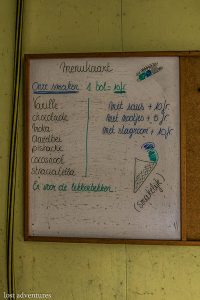 Menukaart
Onze smaken: 1 bol = 10fr
Vanille
chocolade
moka
Aardbei
pistache
cocosnoot
stracciatella
met saus + 10fr
met nootjes + 5fr
met slagroom + 10fr
En voor de lekkerbekken:
(smakelijk)
lost adventures